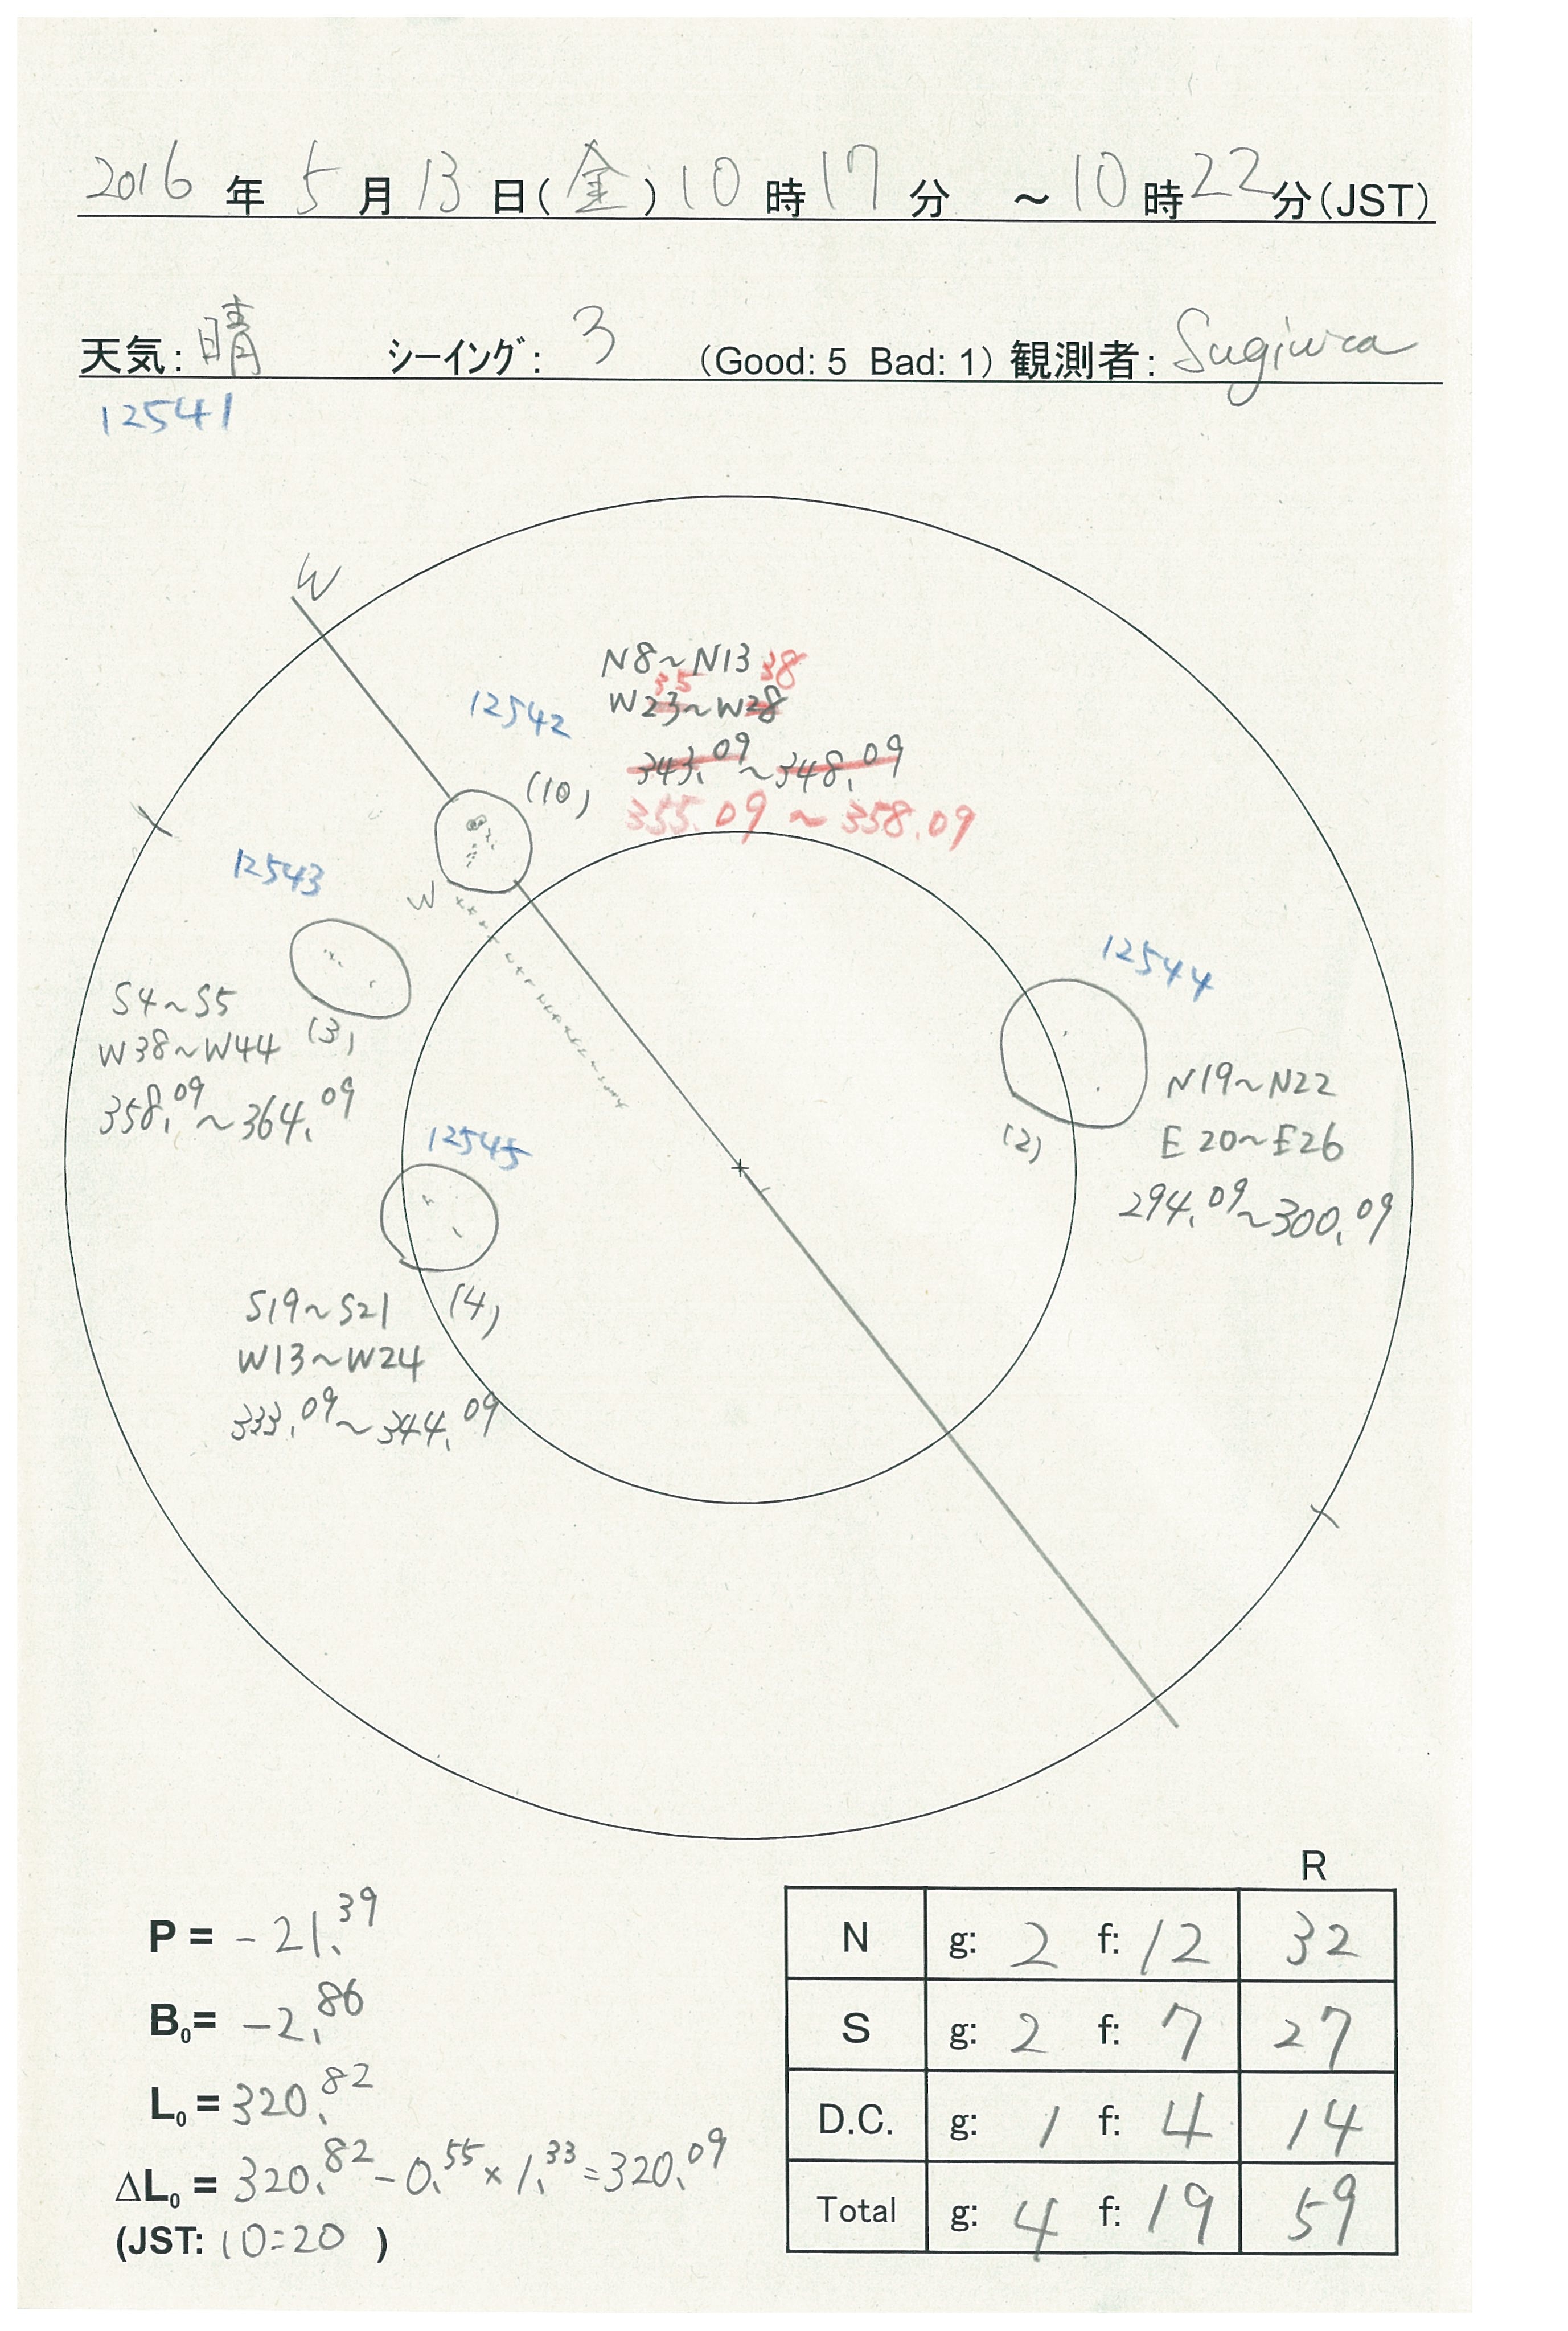 2016 年 5 月 13 日(金) 10 時 17 分 ～ 10 時 22 分(JST)
天気: 晴 シーイング: 3 (Good: 5 Bad: 1) 観測者: Sugiura
12541
W
N8~N13
35 38
W23~W28
12542
343.09~348.09
(10)
355.09 ~ 358.09
12543
W
12544
S4~S5
(3)
W38~W44
358.09~364.09
N19~N22
(2)
E20~E26
294.09~300.09
12545
S19~S21
(4)
W13~W24
333.09~344.09
P = -21.39
B0= -2.86
L0 = 320.82
ΔL0 = 320.82-0.55×1.33=320.09
(JST: 10:20 )
R
N g: 2 f: 12 32
S g: 2 f: 7 27
D.C. g: 1 f: 4 14
Total g: 4 f: 19 59